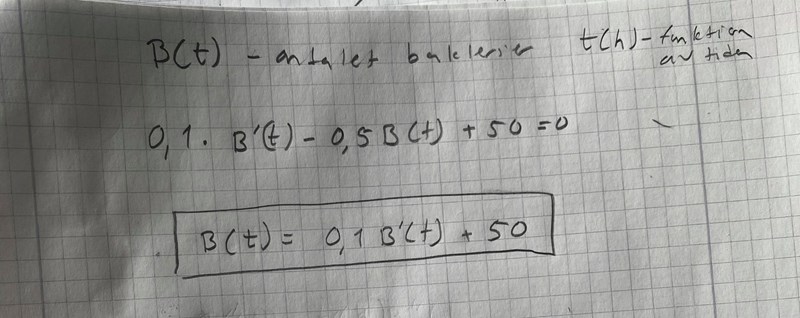 B(t) - antalet bakterier t(h) - funktion
av tiden
0,1 · B'(t) - 0,5 B(t) + 50 = 0
B(t) = 0,1 B'(t) + 50